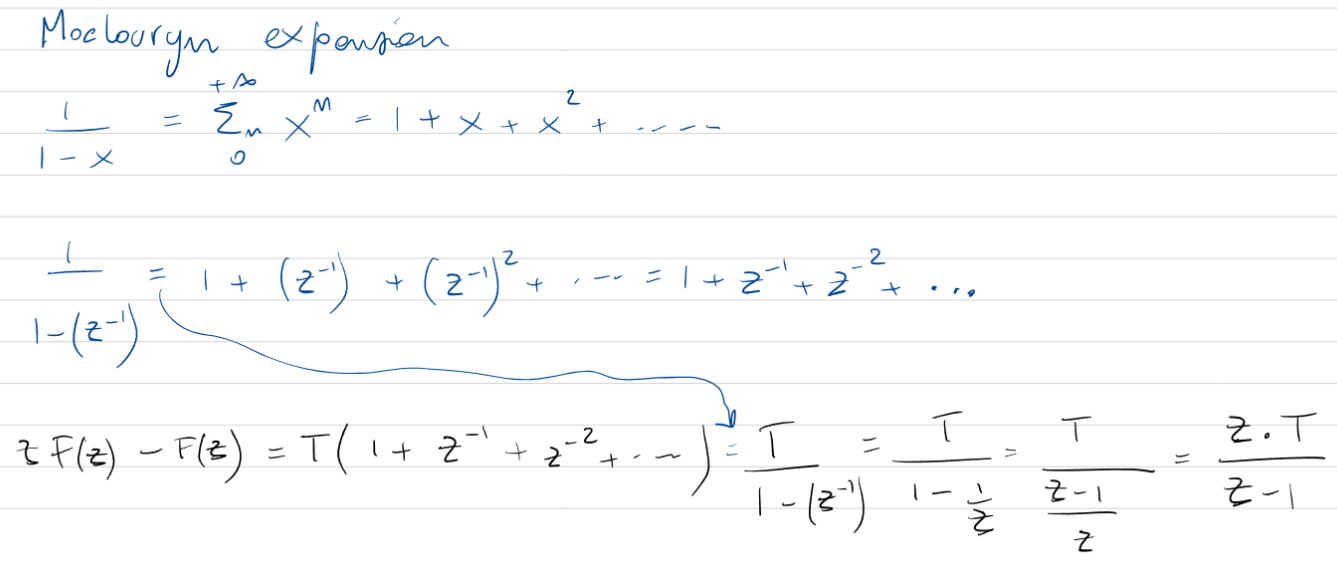 Moclouryn expansion
1/(1-x) = Σₙ₌₀^{+∞} xⁿ = 1 + x + x² + .....
1/(1-(z⁻¹)) = 1 + (z⁻¹) + (z⁻¹)² + ..... = 1 + z⁻¹ + z⁻² + ...
z F(z) - F(z) = T(1 + z⁻¹ + z⁻² + ...) = T/(1-(z⁻¹)) = T/(1 - 1/z) = T/((z-1)/z) = z·T/(z-1)